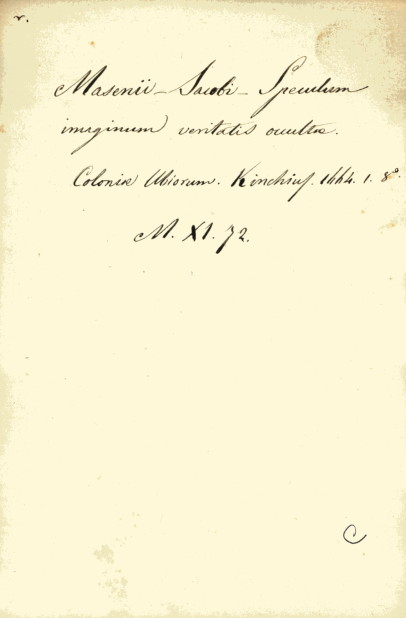 r.
Masenii - Jacobi - Speculum
imaginum veritatis occultæ.
Coloniæ Ubiorum. Kinchius. 1664. 1. 8°.
M. XI. 72.
C